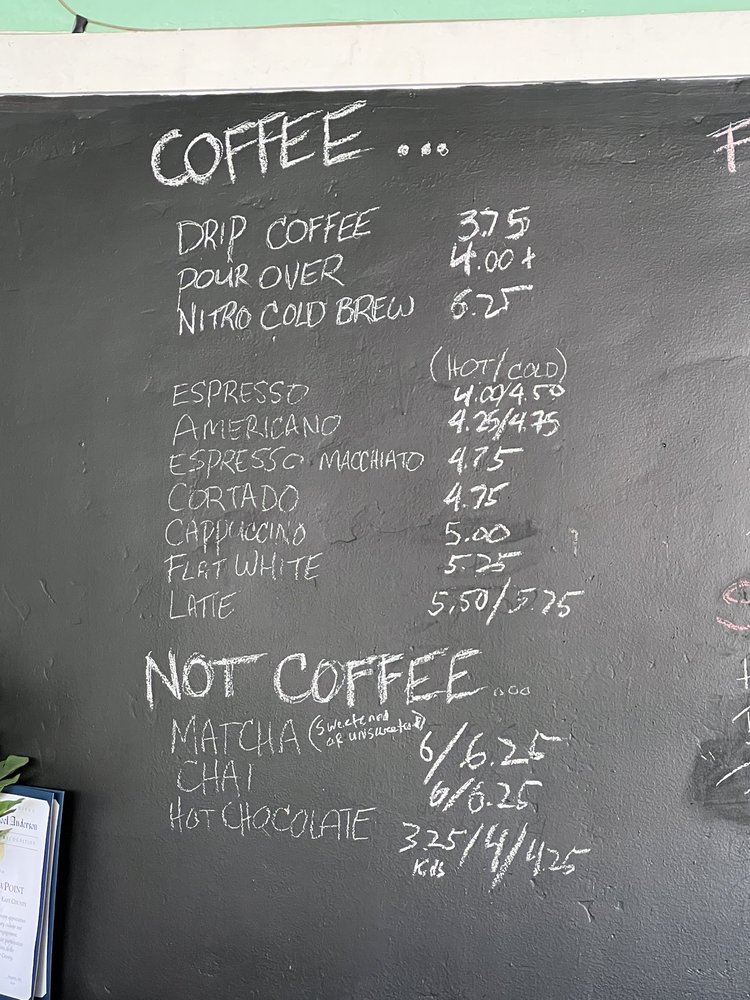 COFFEE ...
DRIP COFFEE 3.75
POUR OVER 4.00+
NITRO COLD BREW 6.25
(HOT/COLD)
ESPRESSO 4.00/4.50
AMERICANO 4.25/4.75
ESPRESSO MACCHIATO 4.75
CORTADO 4.75
CAPPUCCINO 5.00
FLAT WHITE 5.25
LATTE 5.50/5.75
NOT COFFEE...
MATCHA (sweetened or unsweetened) 6/6.25
CHAI 6/6.25
HOT CHOCOLATE 3.25/4/4.25
Kids
Anderson
POINT
EAST COUNTY